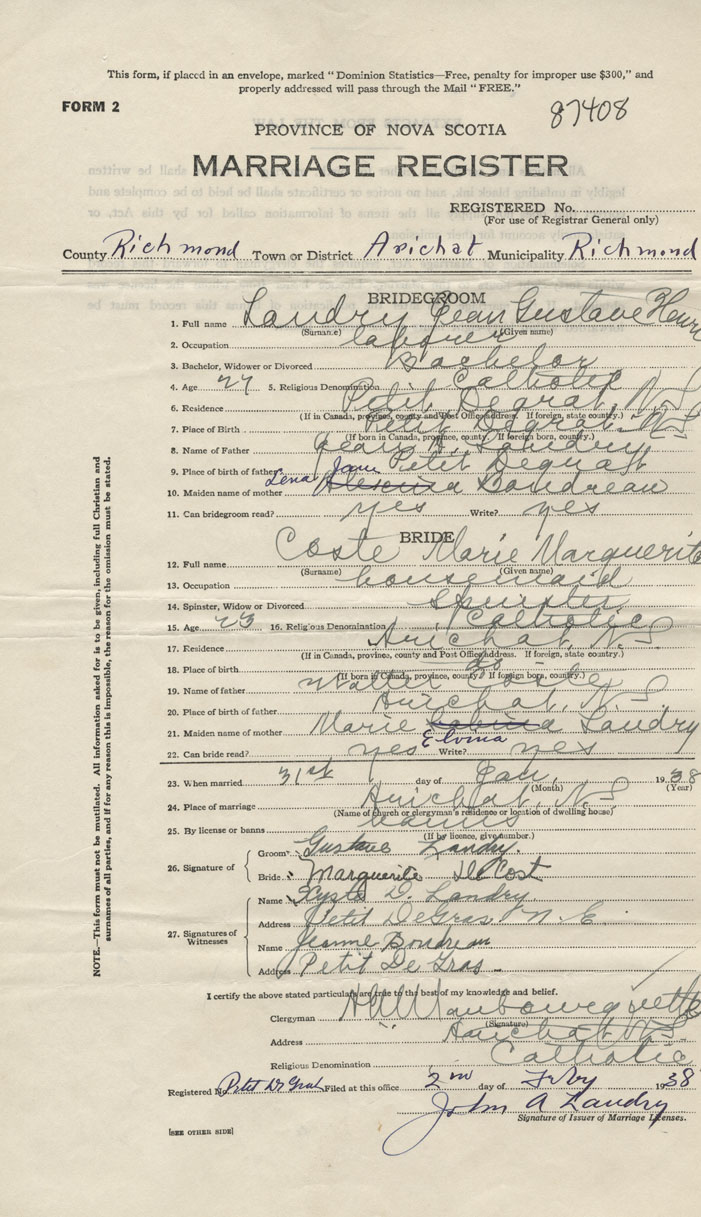 This form, if placed in an envelope, marked "Dominion Statistics—Free, penalty for improper use $300," and
properly addressed will pass through the Mail "FREE."
FORM 2
87408
PROVINCE OF NOVA SCOTIA
MARRIAGE REGISTER
REGISTERED No.
(For use of Registrar General only)
County Richmond Town or District Arichat Municipality Richmond
BRIDEGROOM
1. Full name Landry Jean Gustave Henri
(Surname) (Given name)
2. Occupation labourer
3. Bachelor, Widower or Divorced Bachelor
4. Age 27 5. Religious Denomination Catholic
6. Residence Petit Degrat, N.S.
(If in Canada, province, county and Post Office address. If foreign, state country.)
7. Place of Birth Petit Degrat N.S.
(If born in Canada, province, county. If foreign born, country.)
8. Name of Father Jean A. Landry
9. Place of birth of father Petit Degrat
Lena Jane
10. Maiden name of mother Boudreau
11. Can bridegroom read? yes Write? yes
BRIDE
12. Full name Coste Marie Marguerite
(Surname) (Given name)
13. Occupation housemaid
14. Spinster, Widow or Divorced Spinster
15. Age 23 16. Religious Denomination Catholic
17. Residence Arichat, N.S.
(If in Canada, province, county and Post Office address. If foreign, state country.)
18. Place of birth do
(If born in Canada, province, county. If foreign born, country.)
19. Name of father Walter Coste
20. Place of birth of father Arichat, N.S.
21. Maiden name of mother Marie Landry
Elvina
22. Can bride read? yes Write? yes
23. When married 31st day of Jan. 1938
(Month) (Year)
24. Place of marriage Arichat, N.S.
(Name of church or clergyman's residence or location of dwelling house)
25. By license or banns banns
(If by licence, give number.)
26. Signature of
Groom Gustave Landry.
Bride Marguerite DeCost
27. Signatures of Witnesses
Name D. Landry
Address Petit DeGras N.S.
Name Jeanne Boudreau
Address Petit De Gras
I certify the above stated particulars are true to the best of my knowledge and belief.
Clergyman
(Signature)
Address Arichat N.S.
Religious Denomination Catholic
Registered No. Petit De Grat Filed at this office 2nd day of Feby 1938
John A Landry
Signature of Issuer of Marriage Licenses.
[SEE OTHER SIDE]
NOTE.—This form must not be mutilated. All information asked for is to be given, including full Christian and
surnames of all parties, and if for any reason this is impossible, the reason for the omission must be stated.